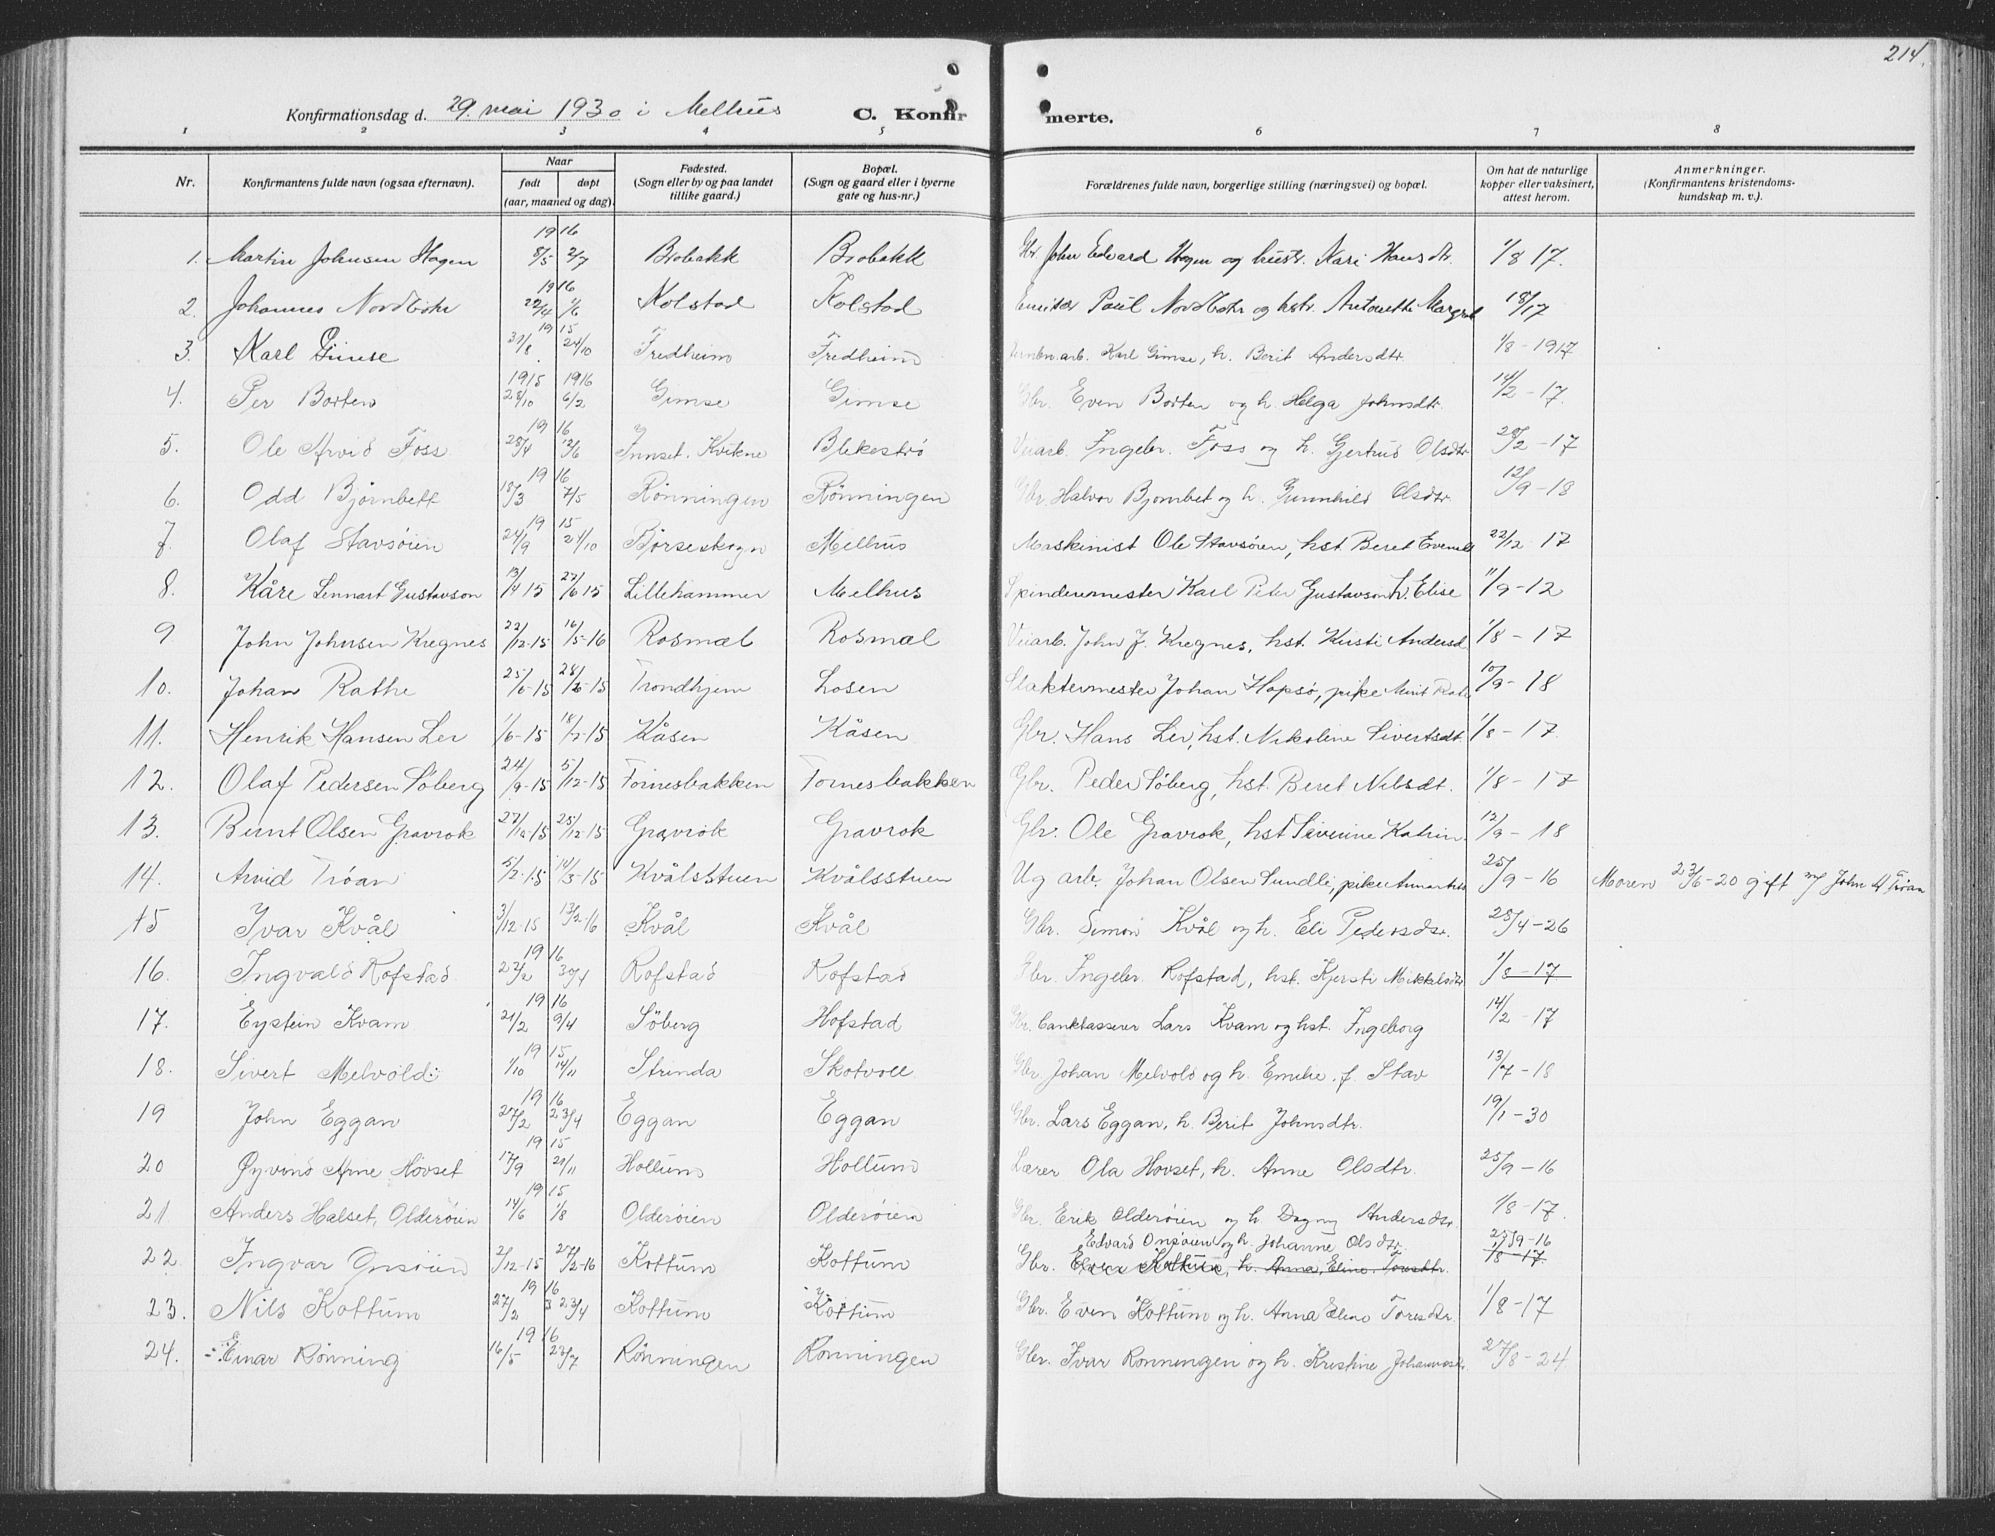 214.
Konfirmationsdag d. 29. mai 1930 i Melhus C. Konfirmerte.
1 2 3 4 5 6 7 8
Nr. Konfirmantens fulde navn (ogsaa efternavn). Naar født døpt (aar, maaned og dag). Fødested. (Sogn eller by og paa landet tillike gaard.) Bopæl. (Sogn og gaard eller i byerne gate og hus-nr.) Forældrenes fulde navn, borgerlige stilling (næringsvei) og bopæl. Om hat de naturlige kopper eller vaksinert, attest herom. Anmerkninger. (Konfirmantens kristendomskundskap m. v.).
1. Martin Johnsen Hagen 1916 8/5 2/7 Brobakk Brobakk Gbr John Edvard Hagen og hustr. Kari Hansdtr. 1/8 17.
2. Johannes Nordbohr 1916 22/4 1/6 Kolstad Kolstad Paul Nordbohr og hstr. Antonette Margret 18/17
3. Karl Gimse 1915 31/8 24/10 Fredheim Fredheim arb. Karl Gimse, h. Berit Andersdtr. 1/8 - 1917
4. Per Borten 1915 1916 28/10 6/2 Gimse Gimse Gbr. Even Borten og h. Helga Johnsdtr. 14/2 - 17.
5. Ole Arvid Foss 1916 28/4 12/6 Innset. Kvikne Blekestrø Veiarb. Ingebr. Foss og h. Gjertrud Olsdtr. 28/2 - 17
6. Odd Bjørnbett 1916 18/3 7/5 Rønningen Rønningen Gbr. Halvor Bjørnbet og h. Gunnhild Olsdtr. 12/9 - 18
7. Olaf Stavsøien 1915 24/9 24/10 Børseskogn Melhus Maskinist Ole Stavsøien, hst. Beret 22/12 17
8. Kåre Lennart Gustavson 13/4 15 27/6 15 Lillehammer Melhus Spinderemester Karl Peter Gustavson h. Elise 11/9 - 12
9 John Johnsen Kregnes 22/12-15 16/5-16 Rosmæl Rosmæl Veiarb. John J. Kregnes, hst. Kirsti Andersd 1/8 - 17
10. Johan Rathe 25/6-15 Trondhjem Losen Slaktermester Johan Hopsø, pike 10/9 - 18
11. Henrik Hansen Ler 1/6-15 18/7-15 Kåsen Kåsen Gbr. Hans Ler, hst. Nikoline Sivertsdt. 1/8 - 17.
12. Olaf Pedersen Søberg 24/9-15 5/12-15 Tornesbakken Tornesbakken Gbr. Peder Søberg, hst. Beret Nilsdt. 1/8 - 17
13. Bernt Olsen Gravrok 27/10-15 25/12-15 Gravrok Gravrok Gbr. Ole Gravrok, hst Siverine Katrin 12/9 - 18
14. Arvid Trøan 5/2-15 14/3-15 Kvålsstuen Kvålsstuen Ug arb. Johan Olsen Sundli, pike 25/9 - 16 Moren 23/6 - 20 gift m/ John Trøan
15 Ivar Kvål 3/12-15 13/2-16 Kvål Kvål Gbr. Simon Kvål og h. Eli Pedersdtr. 25/4 - 26
16. Ingvald Rofstad 1916 22/2 30/4 Rofstad Rofstad Gbr. Ingebr. Rofstad, hst. Kjersti Mikkelsdtr 1/8 - 17
17. Eystein Kvam 1916 21/2 9/4 Søberg Hofstad Gbr. Bankkasserer Lars Kvam og hst. Ingeborg 14/2 - 17
18. Sivert Melvold 1915 1/10 14/11 Strinda Skotvoll Gbr. Johan Melvold og h. Emelie f. Stav 13/7 - 18
19 John Eggan 1916 27/2 23/4 Eggan Eggan Gbr. Lars Eggan, h. Berit Johnsdtr. 19/1 - 30
20 Øyvind Arne Hovset 1915 17/9 21/11 Hollum Hollum Lærer Ola Hovset, h. Anne Olsdtr. 25/9 - 16
21 Anders Halset, Olderøien 1915 14/6 1/8 Olderøien Olderøien Gbr. Erik Olderøien og h. Dagny Andersdtr. 1/8 - 17.
Edvard Onsøien og h. Johanne Olsdtr. 25/9-16
22. Ingvar Onsøien 2/12-15 27/2-16 Kottum Kottum Gbr. Even Kottum, h. Anna, Eline Toresdtr. 1/8 - 17
23. Nils Kottum 1916 27/2 23/4 Kottum Kottum Gbr. Even Kottum og h. Anna Eline Toresdtr. 1/8 - 17
24. Einar Rønning 1916 16/5 23/7 Rønningen Rønningen Gbr. Ivar Rønningen og h. Kristine 27/8 - 24